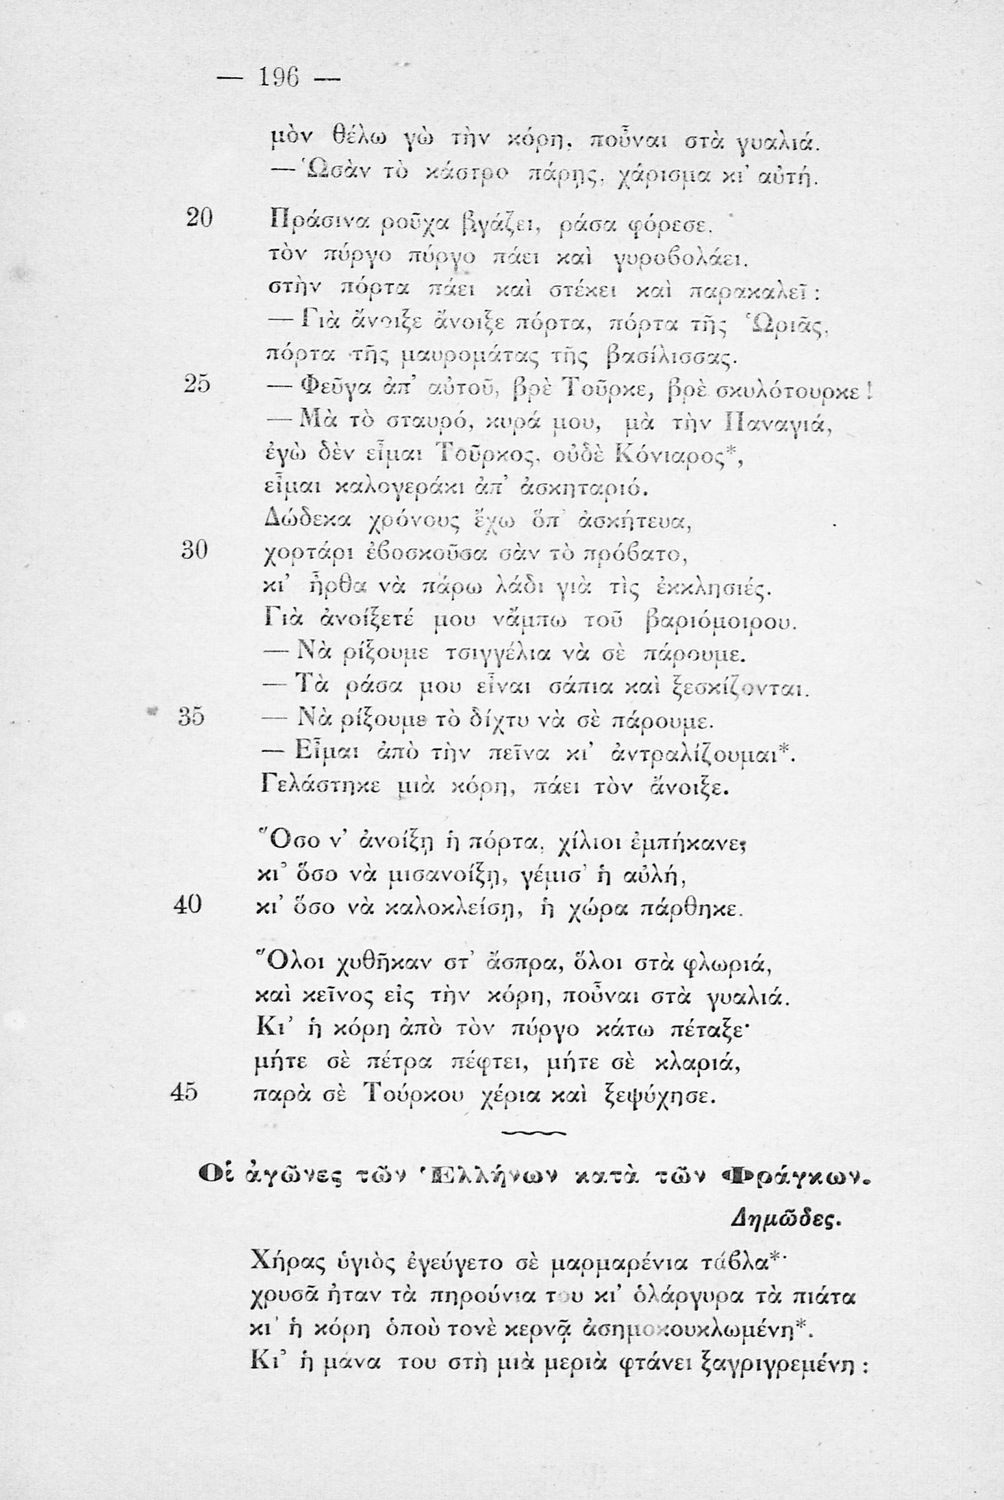 — 196 —
μὸν θέλω γὼ τὴν κόρη, ποὖναι στὰ γυαλιά.
— Ὡσὰν τὸ κάστρο πάρῃς, χάρισμα κι' αὐτή.
20 Πράσινα ροῦχα βγάζει, ράσα φόρεσε.
τὸν πύργο πύργο πάει καὶ γυροβολάει.
στὴν πόρτα πάει καὶ στέκει καὶ παρακαλεῖ :
— Γιὰ ἄνοιξε ἄνοιξε πόρτα, πόρτα τῆς Ὡριᾶς,
πόρτα τῆς μαυρομάτας τῆς βασίλισσας.
25 — Φεῦγα ἀπ' αὐτοῦ, βρὲ Τοῦρκε, βρὲ σκυλότουρκε !
— Μὰ τὸ σταυρό, κυρά μου, μὰ τὴν Παναγιά,
ἐγὼ δὲν εἶμαι Τοῦρκος, οὐδὲ Κόνιαρος*,
εἶμαι καλογεράκι ἀπ' ἀσκηταριό.
Δώδεκα χρόνους ἔχω ὅπ' ἀσκήτευα,
30 χορτάρι ἐβοσκοῦσα σὰν τὸ πρόβατο,
κι' ἦρθα νὰ πάρω λάδι γιὰ τὶς ἐκκλησιές.
Γιὰ ἀνοίξετέ μου νἄμπω τοῦ βαριόμοιρου.
— Νὰ ρίξουμε τσιγγέλια νὰ σὲ πάρουμε.
— Τὰ ράσα μου εἶναι σάπια καὶ ξεσκίζονται.
35 — Νὰ ρίξουμε τὸ δίχτυ νὰ σὲ πάρουμε.
— Εἶμαι ἀπὸ τὴν πεῖνα κι' ἀντραλίζουμαι*.
Γελάστηκε μιὰ κόρη, πάει τὸν ἄνοιξε.
Ὅσο ν' ἀνοίξῃ ἡ πόρτα, χίλιοι ἐμπήκανε;
κι' ὅσο νὰ μισανοίξῃ, γέμισ' ἡ αὐλή,
40 κι' ὅσο νὰ καλοκλείσῃ, ἡ χώρα πάρθηκε.
Ὅλοι χυθῆκαν στ' ἄσπρα, ὅλοι στὰ φλωριά,
καὶ κεῖνος εἰς τὴν κόρη, ποὖναι στὰ γυαλιά.
Κι' ἡ κόρη ἀπὸ τὸν πύργο κάτω πέταξε·
μήτε σὲ πέτρα πέφτει, μήτε σὲ κλαριά,
45 παρὰ σὲ Τούρκου χέρια καὶ ξεψύχησε.
Οἱ ἀγῶνες τῶν Ἑλλήνων κατὰ τῶν Φράγκων.
Δημῶδες.
Χήρας ὑγιὸς ἐγεύγετο σὲ μαρμαρένια τάβλα*·
χρυσᾶ ἦταν τὰ πηρούνια του κι' ὁλάργυρα τὰ πιάτα
κι' ἡ κόρη ὁποὺ τονὲ κερνᾷ ἀσημοκουκλωμένη*.
Κι' ἡ μάνα του στὴ μιὰ μεριὰ φτάνει ξαγριγρεμένη :